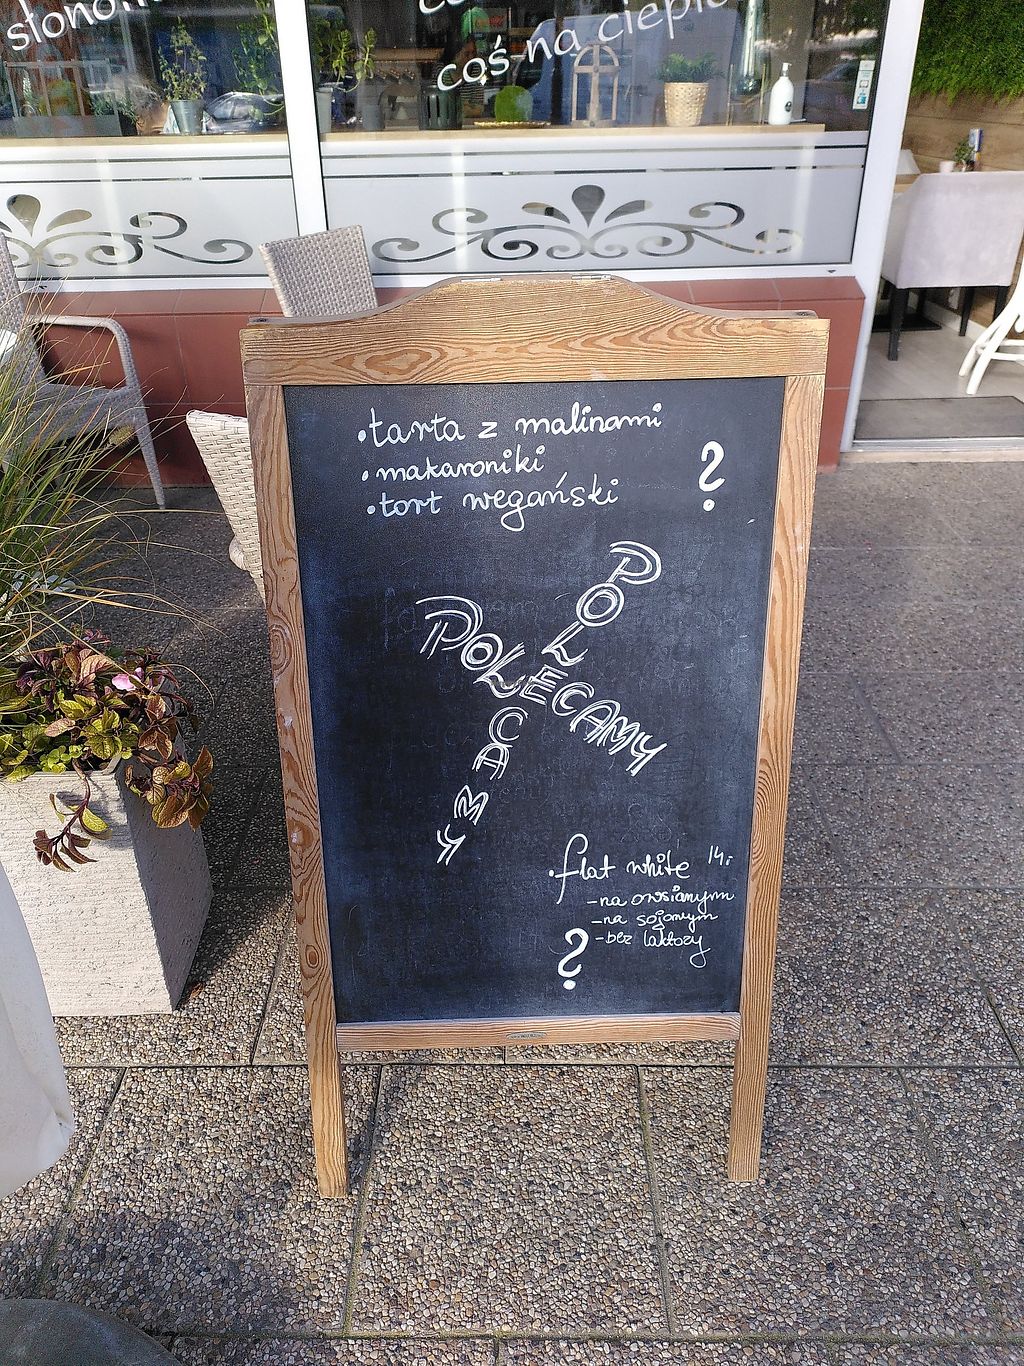 słono
coś na ciepło
• tarta z malinami
• makaroniki
• tort wegański
?
POLECAMY
POLECAMY
• flat white 14,-
- na owsianym
- na sojowym
- bez laktozy
?